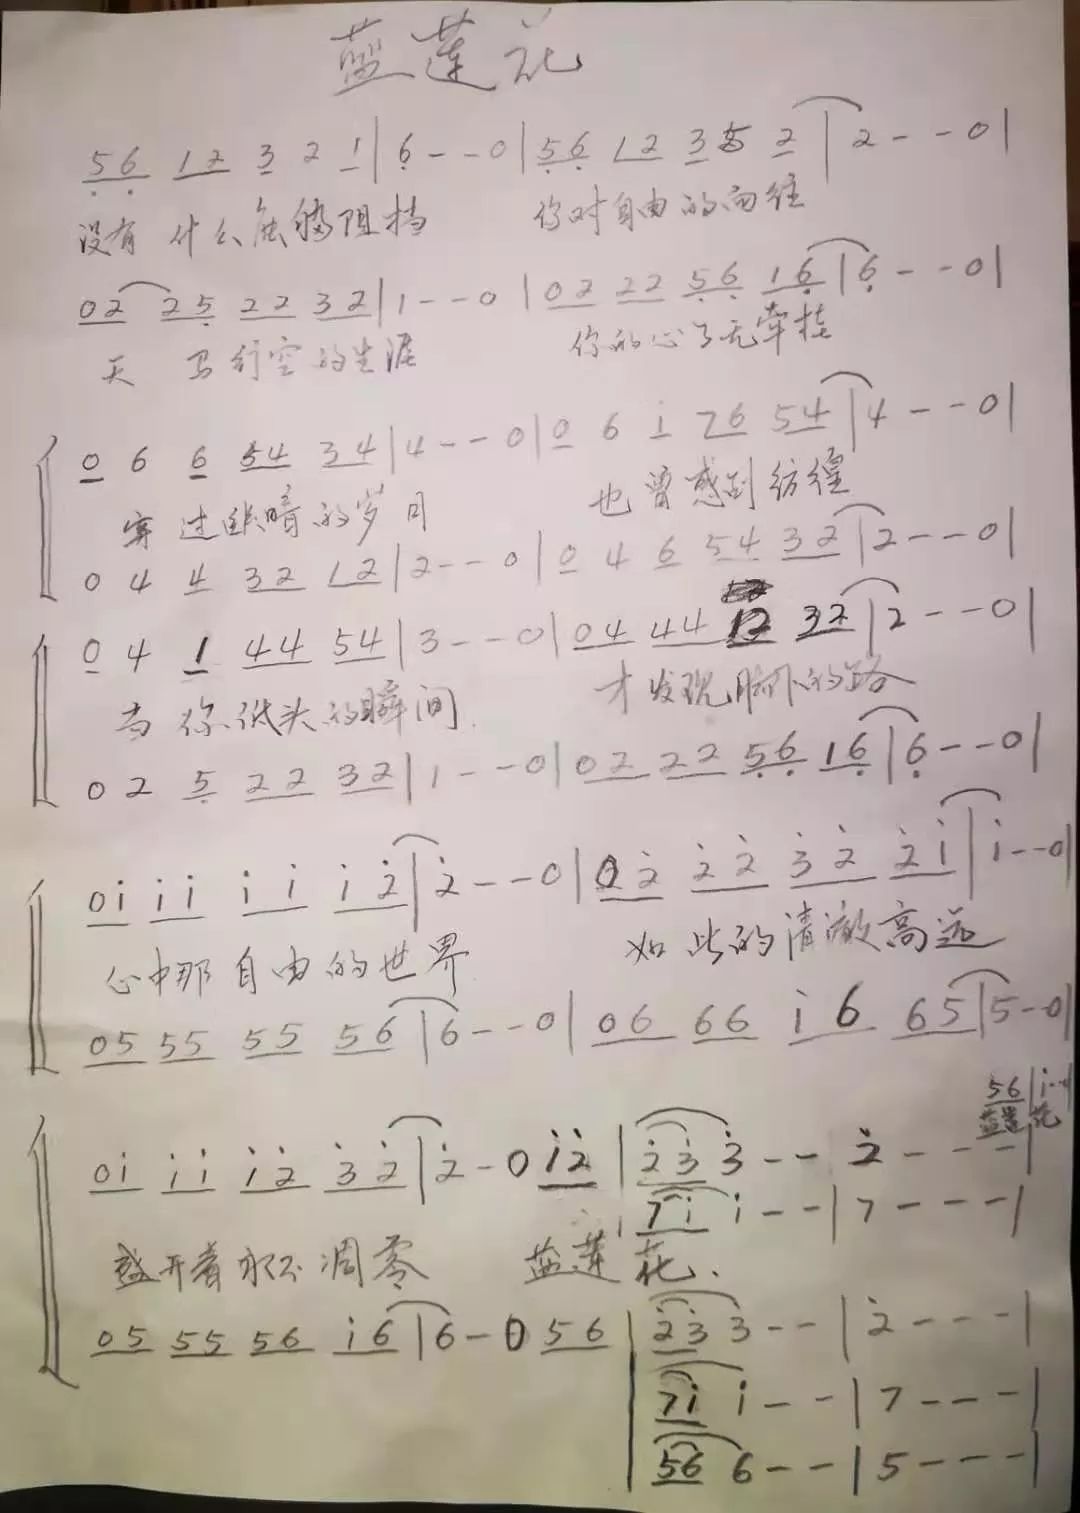 蓝莲花
56 12 3 2 1 | 6 - - 0 | 56 12 35 2 | 2 - - 0 |
没有 什么能够阻挡 你对自由的向往
02 25 22 32 | 1 - - 0 | 02 22 56 16 | 6 - - 0 |
天 马行空的生涯 你的心了无牵挂
0 6 6 54 34 | 4 - - 0 | 0 6 i 76 54 | 4 - - 0 |
穿过幽暗的岁月 也曾感到彷徨
0 4 4 32 12 | 2 - - 0 | 0 4 6 54 32 | 2 - - 0 |
0 4 1 44 54 | 3 - - 0 | 04 44 12 32 | 2 - - 0 |
当你低头的瞬间 才发现脚下的路
0 2 5 22 32 | 1 - - 0 | 02 22 56 16 | 6 - - 0 |
0i i i i i i 2̇ | 2̇ - - 0 | 02̇ 2̇2̇ 3̇2̇ 2̇i | i - - 0
心中那自由的世界 如此的清澈高远
05 55 55 56 | 6 - - 0 | 06 66 i6 65 | 5 - 0
56 | i - -
蓝莲 花
0i i i i2̇ 3̇2̇ | 2̇ - 0 i2̇ | 2̇3̇ 3̇ - - 2̇ - - - |
7i i - - | 7 - - - |
盛开着永不凋零 蓝莲花、
05 55 56 i6 | 6 - 0 56 | 2̇3̇ 3 - - | 2̇ - - - |
7i i - - | 7 - - - |
56 6 - - | 5 - - - |